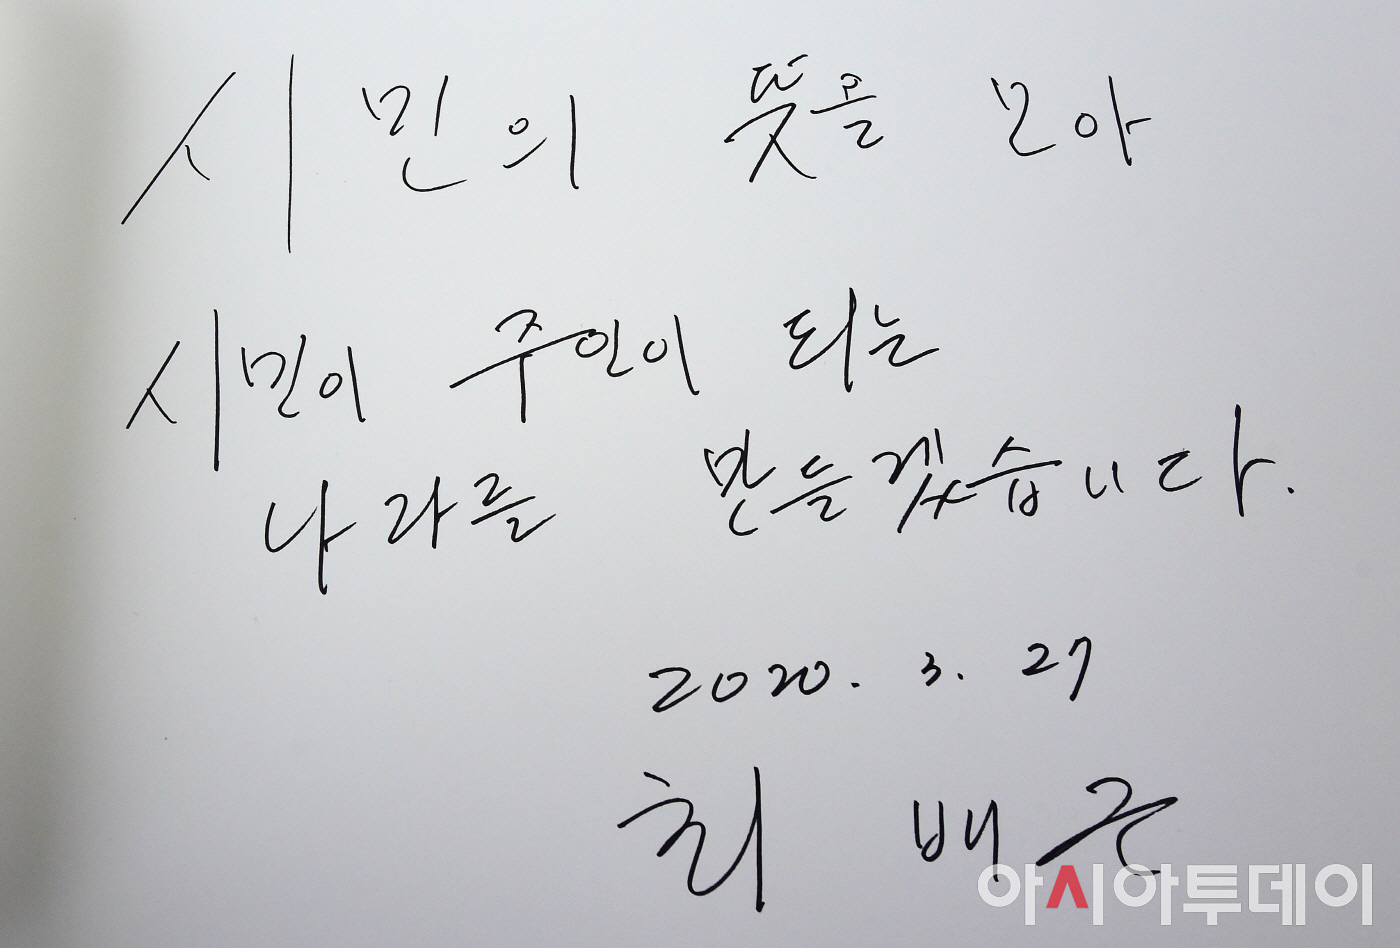 시민의 뜻을 모아
시민이 주인이 되는
나라를 만들겠습니다.
2020. 3. 27
최배근
아시아투데이